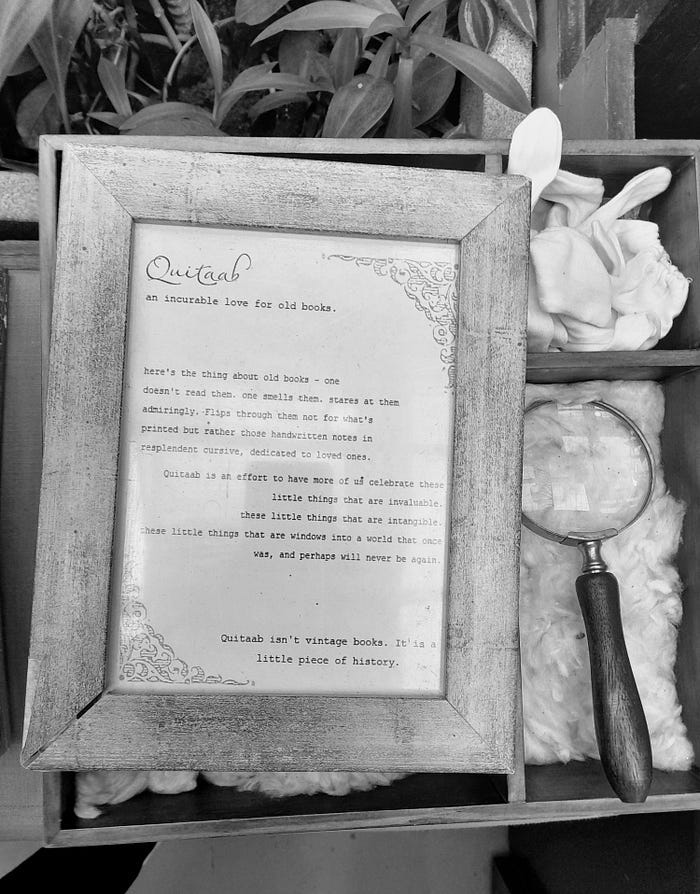 Quitaab
an incurable love for old books.
here's the thing about old books - one
doesn't read them. one smells them. stares at them
admiringly. Flips through them not for what's
printed but rather those handwritten notes in
resplendent cursive, dedicated to loved ones.
Quitaab is an effort to have more of us celebrate these
little things that are invaluable.
these little things that are intangible.
these little things that are windows into a world that once
was, and perhaps will never be again.
Quitaab isn't vintage books. It is a
little piece of history.